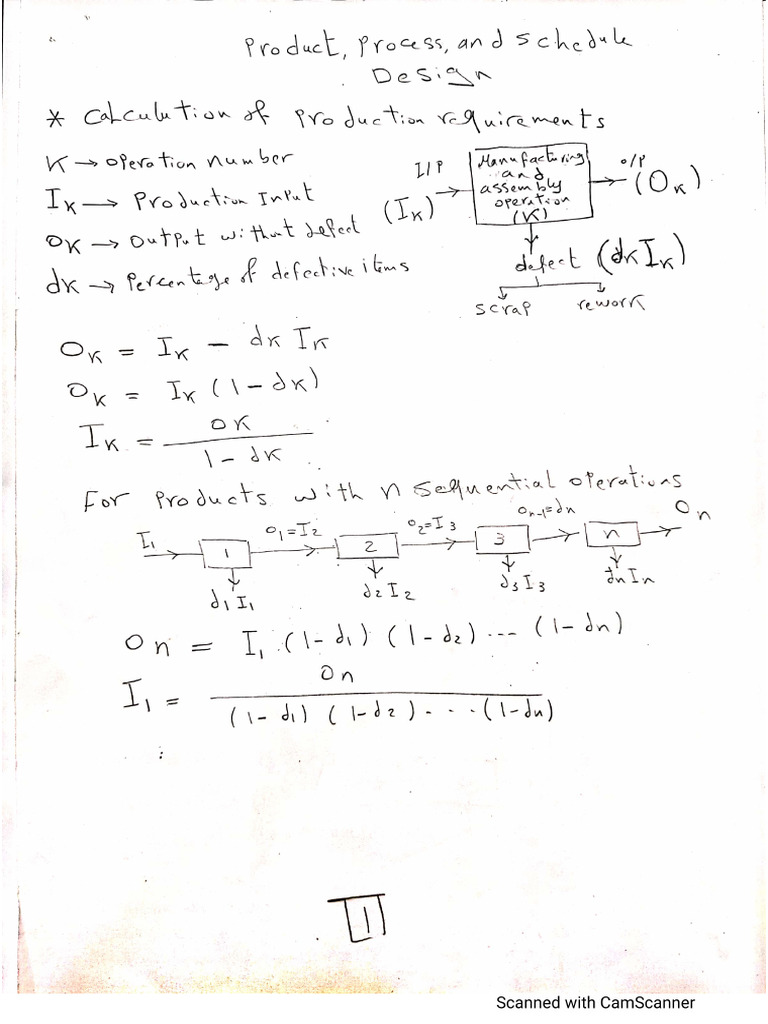 Product, Process, and Schedule
Design
* Calculation of production requirements
K → operation number
I_K → Production Input
O_K → Output without defect
d_K → Percentage of defective items
I/P
(I_K)
Manufacturing
and
assembly
operation
(K)
O/P
(O_K)
defect (d_K I_K)
scrap rework
O_K = I_K - d_K I_K
O_K = I_K (1 - d_K)
I_K = O_K / (1 - d_K)
For products with n sequential operations
I_1 1 O_1=I_2 2 O_2=I_3 3 O_n-1=d_n n O_n
d_1 I_1 d_2 I_2 d_3 I_3 d_n I_n
O_n = I_1 (1-d_1) (1-d_2) ... (1-d_n)
I_1 = O_n / (1-d_1) (1-d_2) ... (1-d_n)
1
Scanned with CamScanner